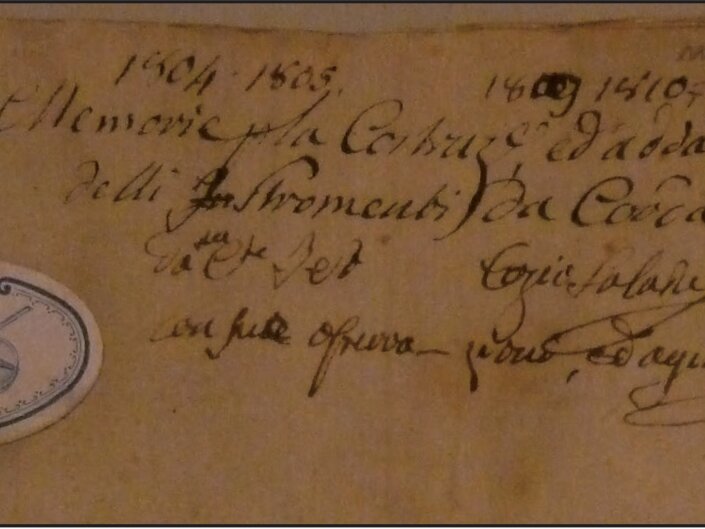 1804 - 1805. 1809 1810
Memorie p la Costruz.e ed adda
delli Instromenti da Corda
da Cte
Cozio Salabu
con sue osservazioni, ed aqui